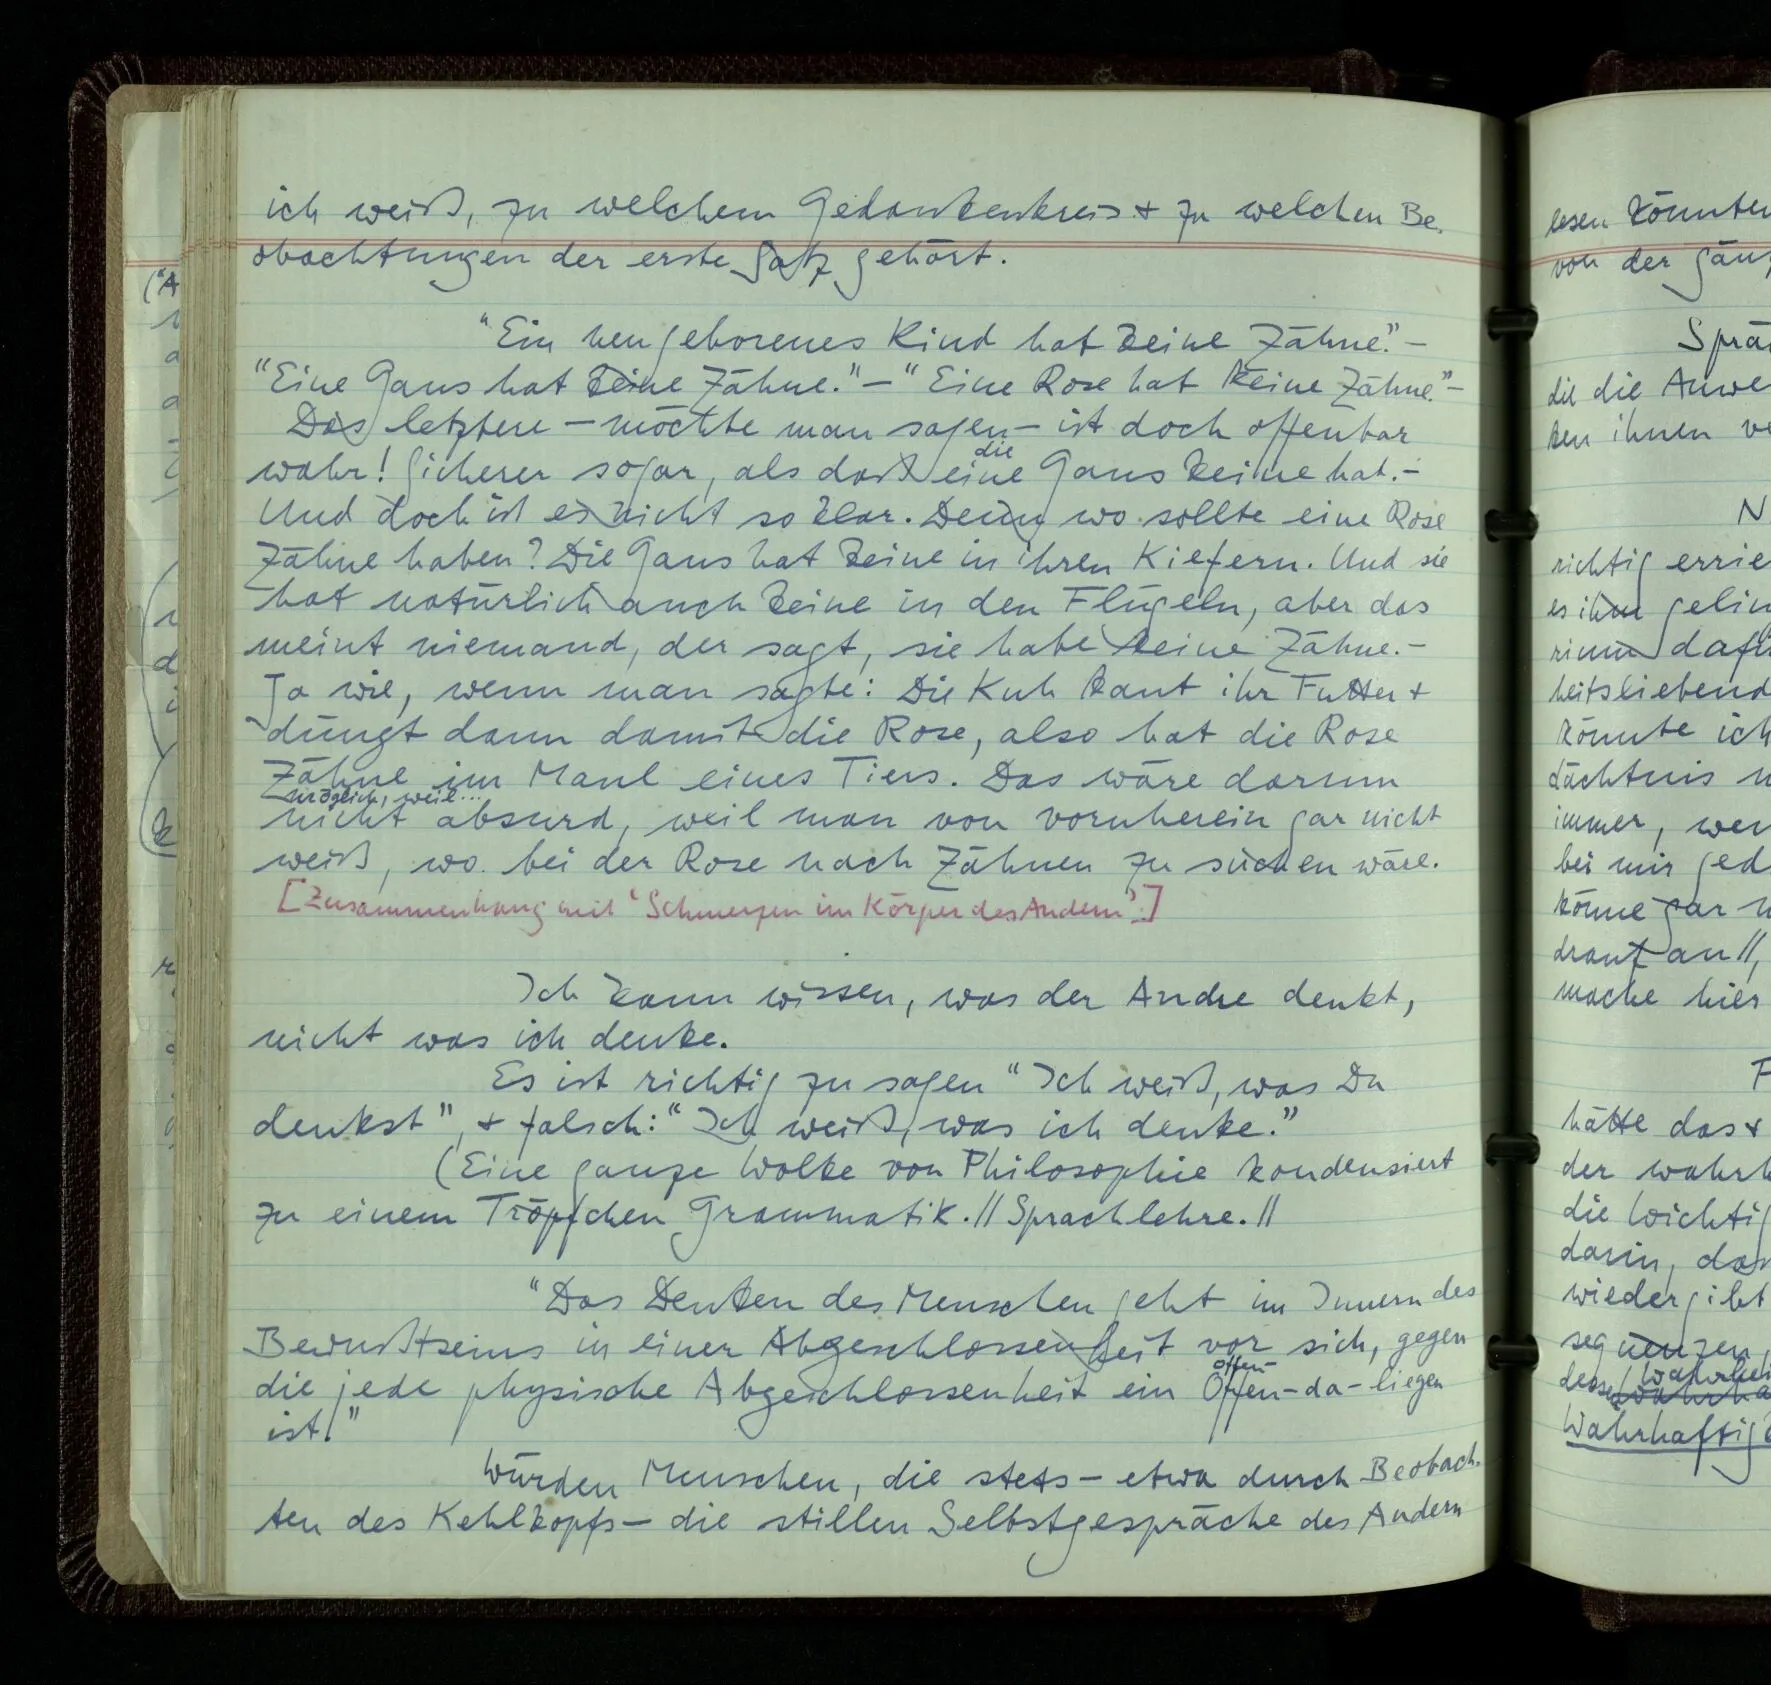 ich weiß, zu welchem Gedankenkreis & zu welchen Be-
obachtungen der erste Satz gehört.
"Ein neugeborenes Kind hat keine Zähne." –
"Eine Gans hat keine Zähne." – "Eine Rose hat keine Zähne." –
Das letztere – möchte man sagen – ist doch offenbar
die
wahr! Sicherer sogar, als daß eine Gans keine hat. –
Und doch ist es nicht so klar. Denn wo sollte eine Rose
Zähne haben? Die Gans hat keine in ihren Kiefern. Und sie
hat natürlich auch keine in den Flügeln, aber das
meint niemand, der sagt, sie habe keine Zähne. –
Ja wie, wenn man sagte: Die Kuh kaut ihr Futter &
düngt dann damit die Rose, also hat die Rose
Zähne im Maul eines Tiers. Das wäre darum
möglich, weil...
nicht absurd, weil man von vornherein gar nicht
weiß, wo bei der Rose nach Zähnen zu suchen wäre.
[Zusammenhang mit 'Schmerzen im Körper des Andern'.]
Ich kann wissen, was der Andre denkt,
nicht was ich denke.
Es ist richtig zu sagen "Ich weiß, was Du
denkst", & falsch: "Ich weiß, was ich denke."
(Eine ganze Wolke von Philosophie kondensiert
zu einem Tröpfchen Grammatik. // Sprachlehre. //
"Das Denken des Menschen geht im Innern des
Bewußtseins in einer Abgeschlossenheit vor sich, gegen
offen-
die jede physische Abgeschlossenheit ein Offen-da-liegen
ist."
Würden Menschen, die stets – etwa durch Beobach-
ten des Kehlkopfs – die stillen Selbstgespräche des Andern
lesen könnten
von der
die die
ten ihnen
richtig
es ihm
könnte ich
immer,
bei mir
könne gar
an //,
mache hier
hätte das &
der
die
darin,
Wahrhaftig